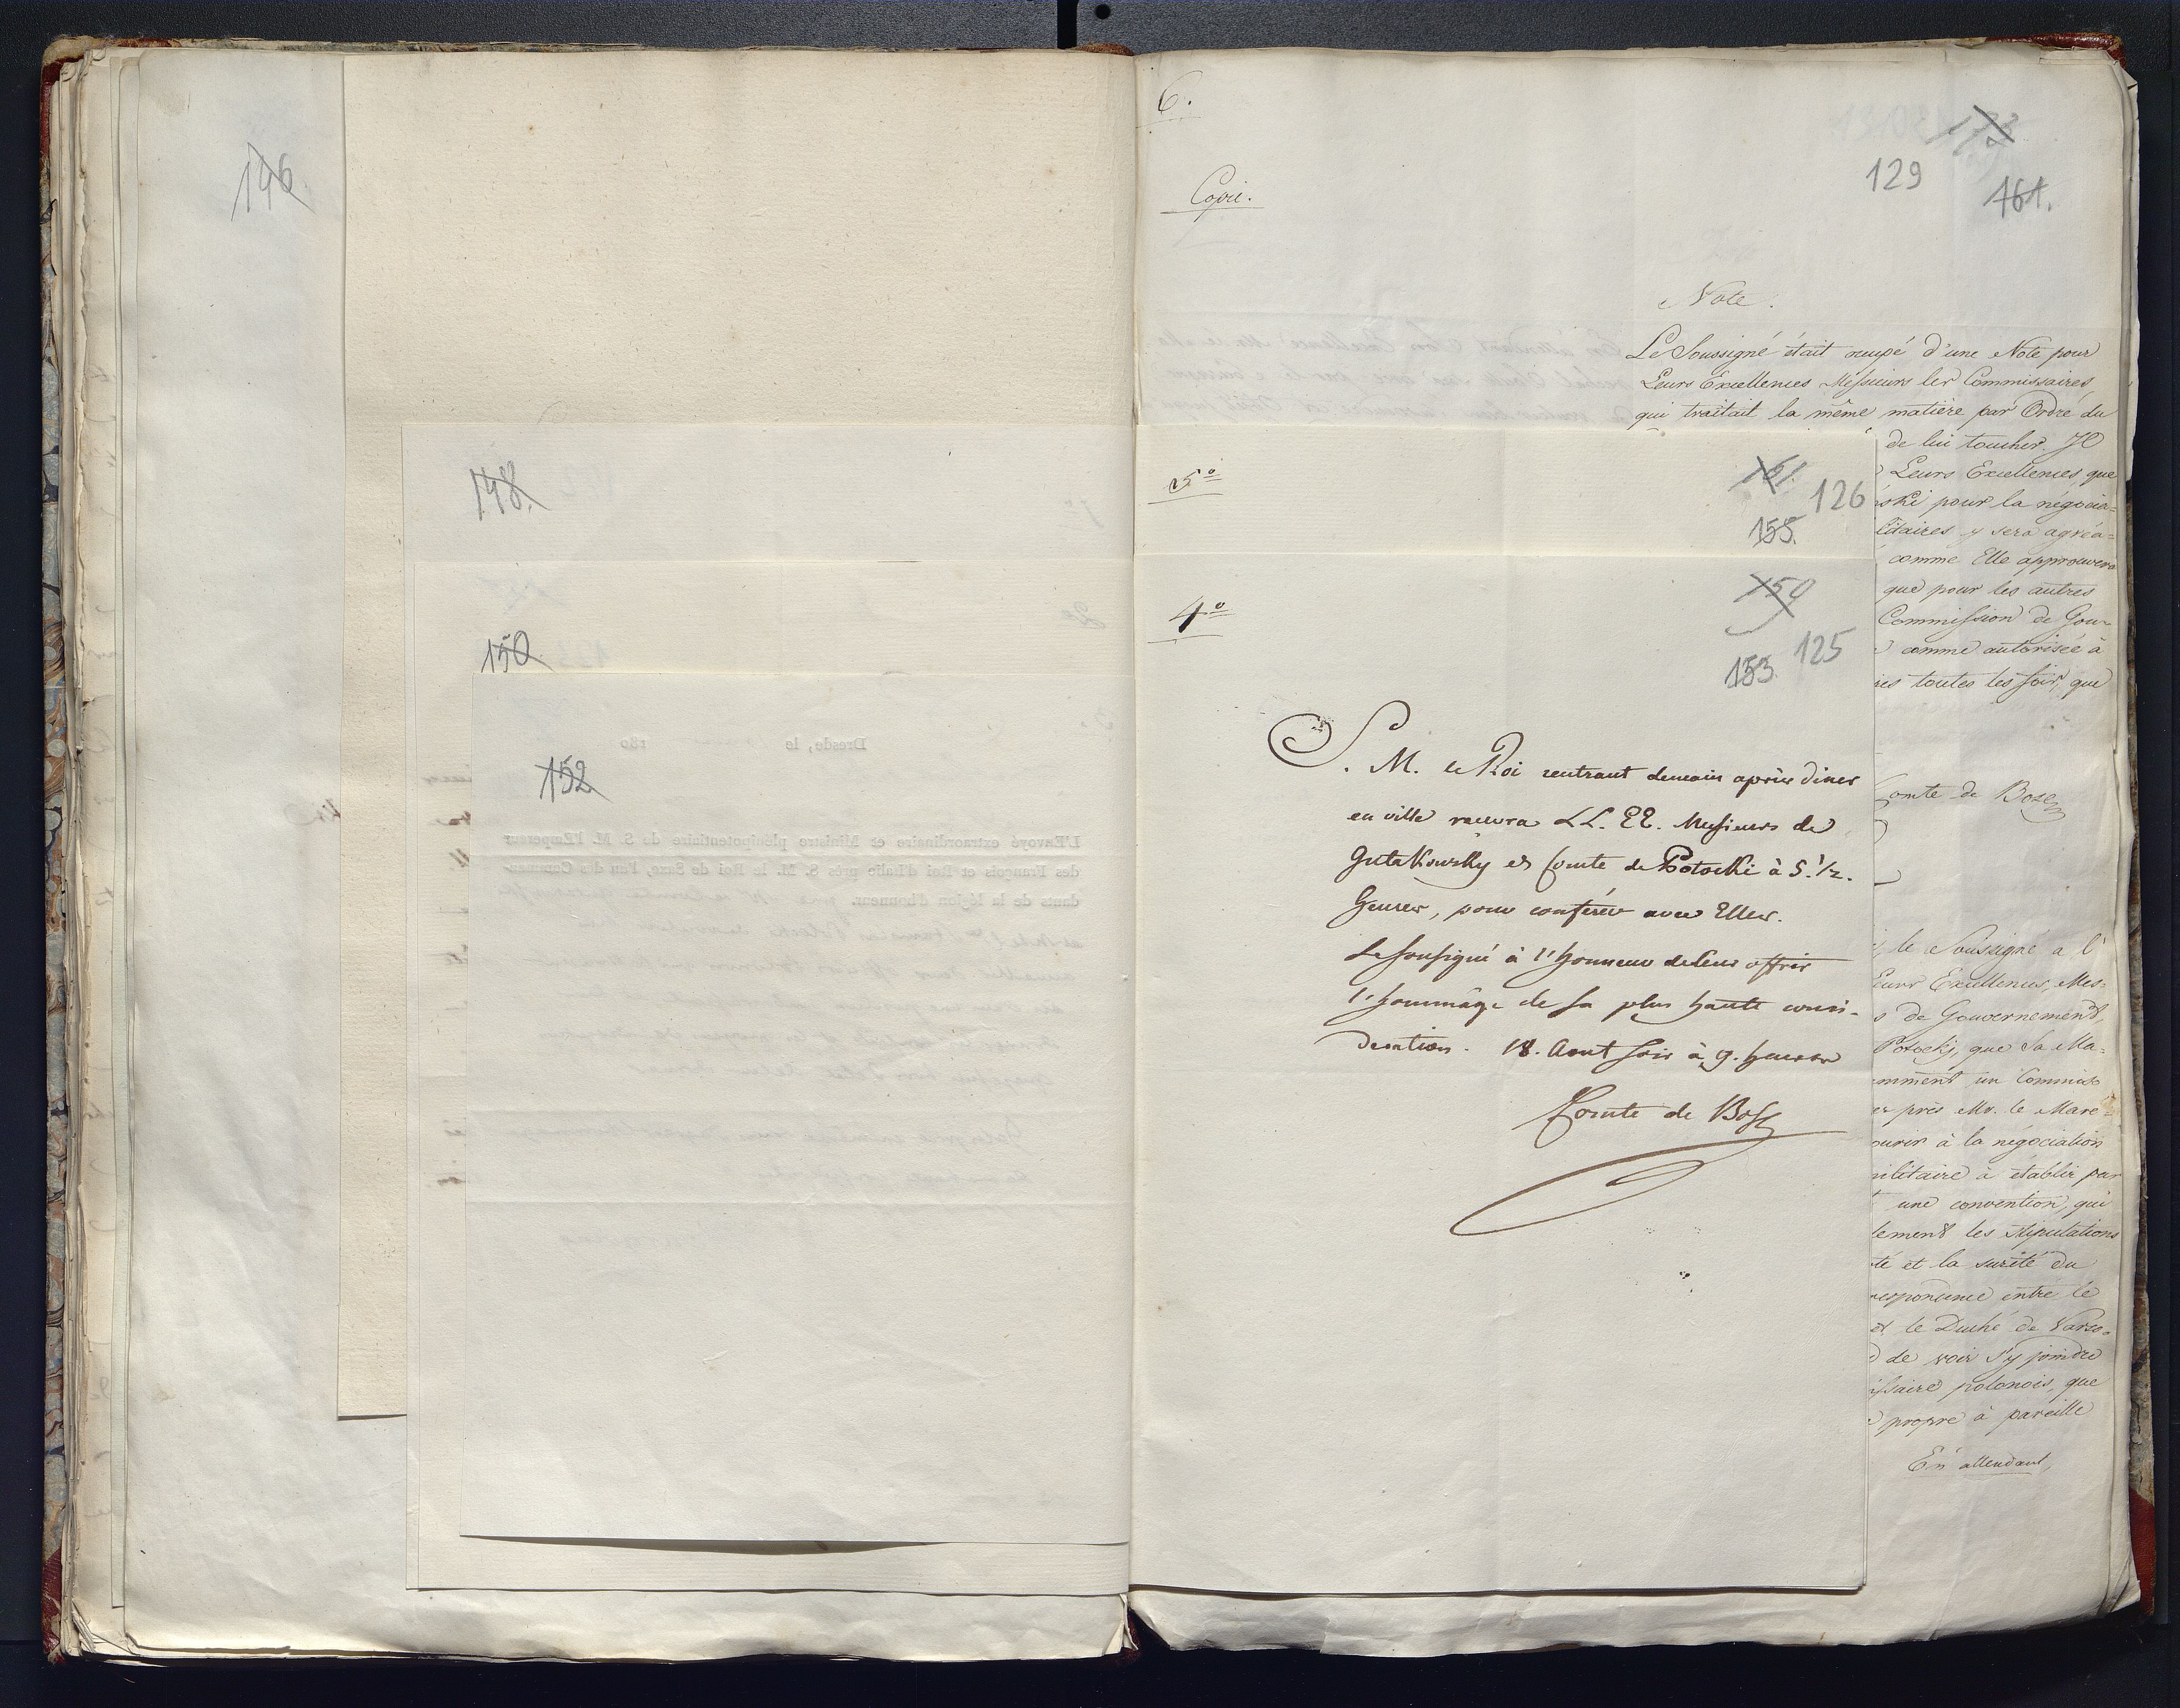 146
148.
150
152
6.
Copie.
173
129
161.
Note.
Le Soussigné était occupé d'une Note pour
Leurs Excellences Messieurs les Commissaires,
qui traitait la même matière par Ordre du
de lui toucher. Il
Leurs Excellences que
ski pour la négocia=
litaires y sera agréa=
comme Elle approuvera
que pour les autres
Commission de Gou-
comme autorisée à
res toutes les fois, que
Comte de Bose
le Soussigné a l'
Leurs Excellences, Mes=
s de Gouvernement,
Potocki, que Sa Ma=
mment un Commis
er près Mr. le Maré=
ourir à la négociation
militaire à établir par
une convention, qui
lement les stipulations
té et la sureté du
respondence entre le
et le Duché de Varso=
de voir s'y joindre
issaire polonois, que
propre à pareille
En attendant,
5º
151.
126
155.
4º
150
125
153
S. M. le Roi rentrant demain après diner
en ville recevra LL. EE. Messieurs de
Gutakowsky et Comte de Potocki à 5. 1/2.
heures, pour conférer avec Elles.
Le soussigné à l'honneur de leur offrir
l'hommage de sa plus haute consi-
deration. 18. Aout soir à 9. heures
Comte de Bose
Dresde, le 180
L'Envoyé extraordinaire et Ministre plénipotentiaire de S. M. l'Empereur
des Français et Roi d'Italie près S. M. le Roi de Saxe, l'un des Comman-
dants de la légion d'honneur.